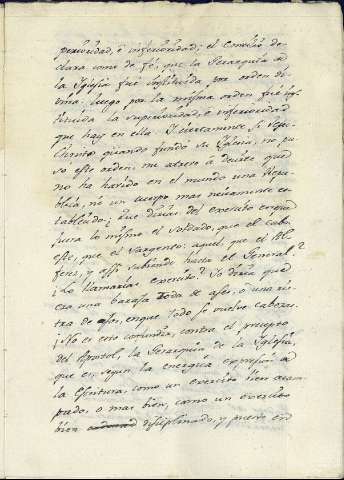 perioridad, è inferioridad; el Concilio de-
clara como de fé, que la Gerarquia de
la Iglesia fué instituida por orden di-
vina: luego por la misma orden fué ins-
tituida la superioridad, è inferioridad
que hay en ella. I ciertamente si Jesu-
Christo quando fundó su Iglesia, no pu-
so este orden: me atrevo à decirte que
no ha havido en el mundo una Repu-
blica, ni un cuerpo mas neciamente es-
tablecido; ¿que dirias del exercito en que
fuera lo mismo el soldado, que el cabo:
este, que el Sargento: aquel, que el Al-
ferez, y assi subiendo hasta el General?
¿Lo llamarias exercito? Yo diria que
era una baraja toda de ases, ò una ris-
tra de ajos, en que todo se vuelve cabezas.
¿No es esto confundir, contra el precepto
del Apostol, la Gerarquia de la Iglesia,
que es, segun la energica expresion de
la Escritura, como un exercito bien acam-
pado, ò mas bien, como un exercito
bien disciplinado, y puesto en